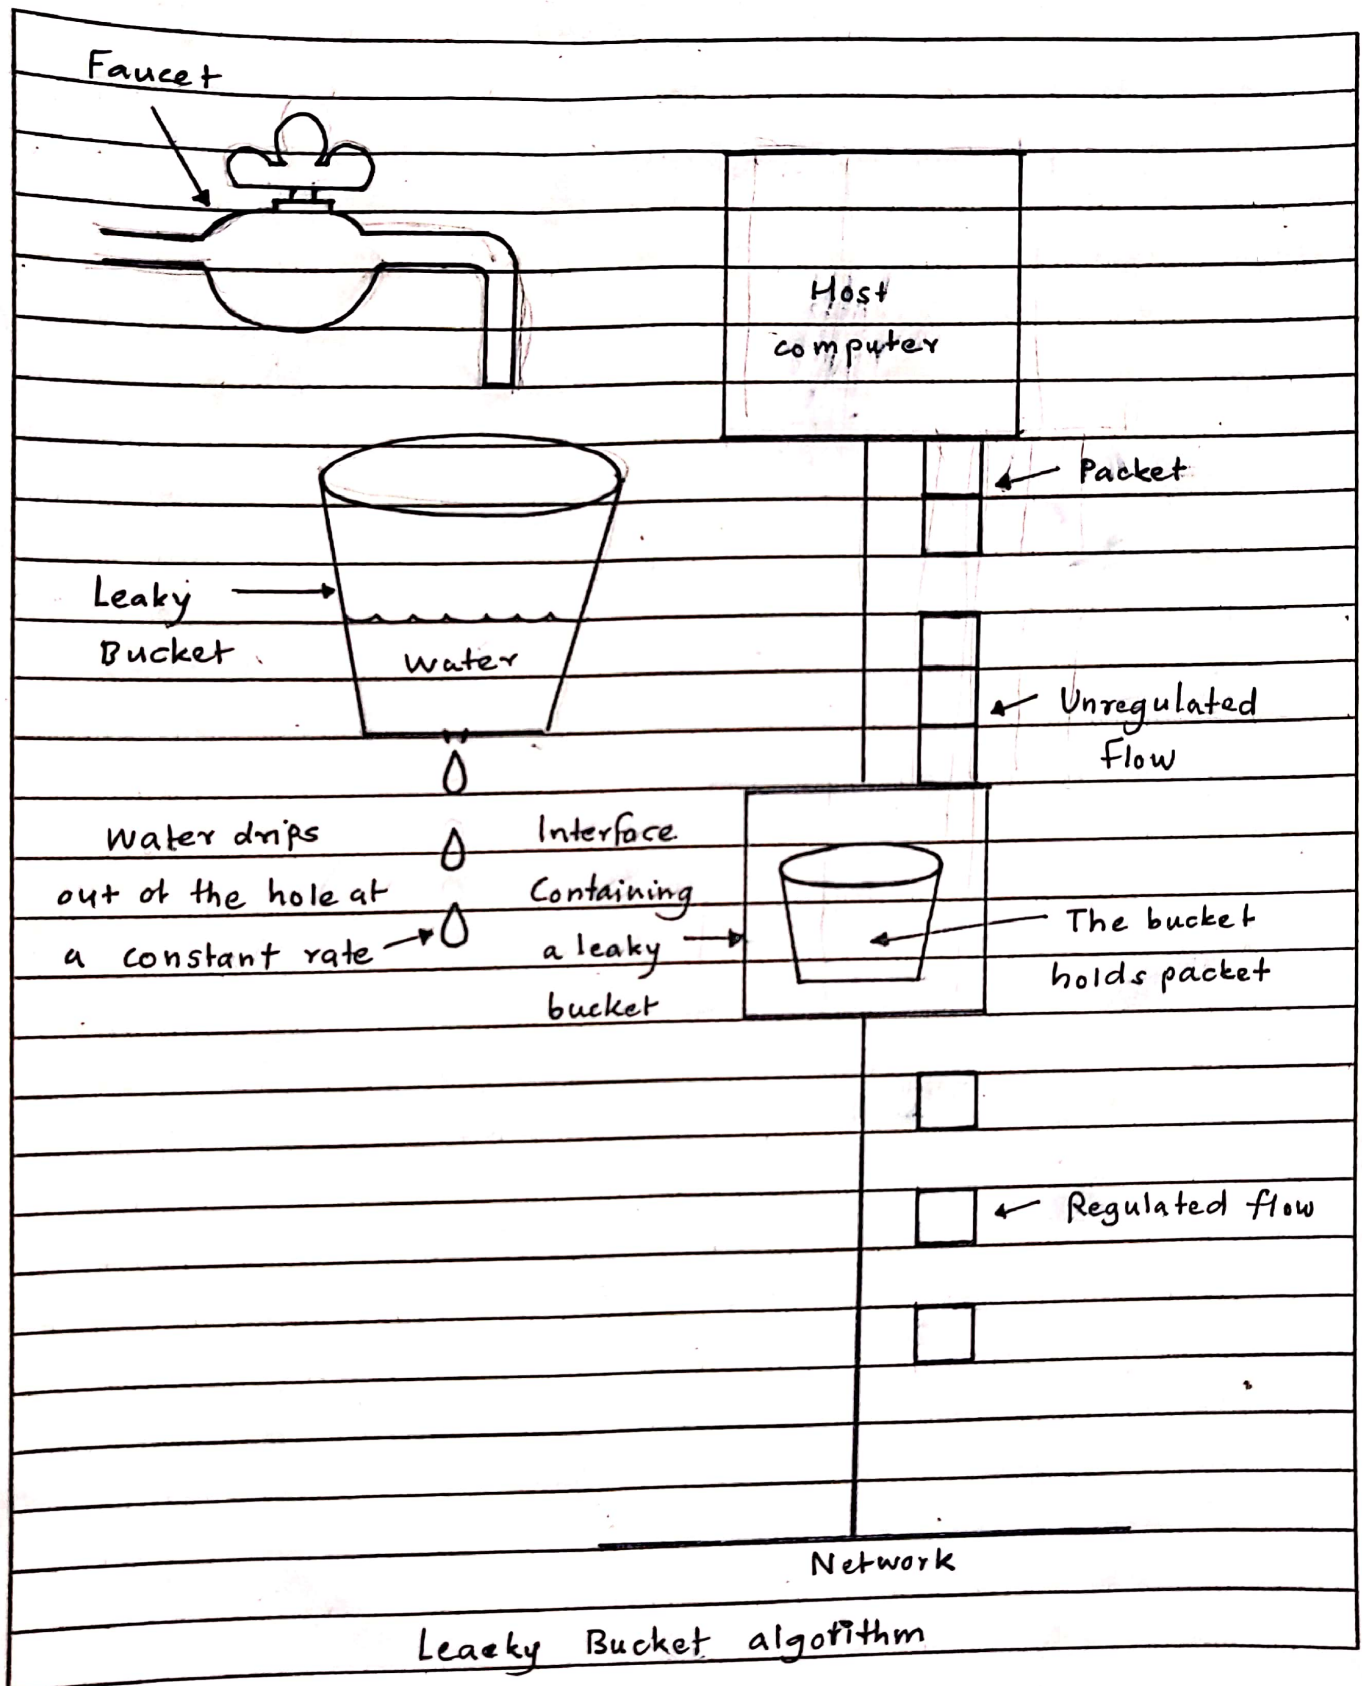 Faucet
Host
computer
Packet
Leaky
Bucket
Water
Unregulated
flow
Water drips
out of the hole at
a constant rate
Interface
Containing
a leaky
bucket
The bucket
holds packet
Regulated flow
Network
Leacky Bucket algorithm